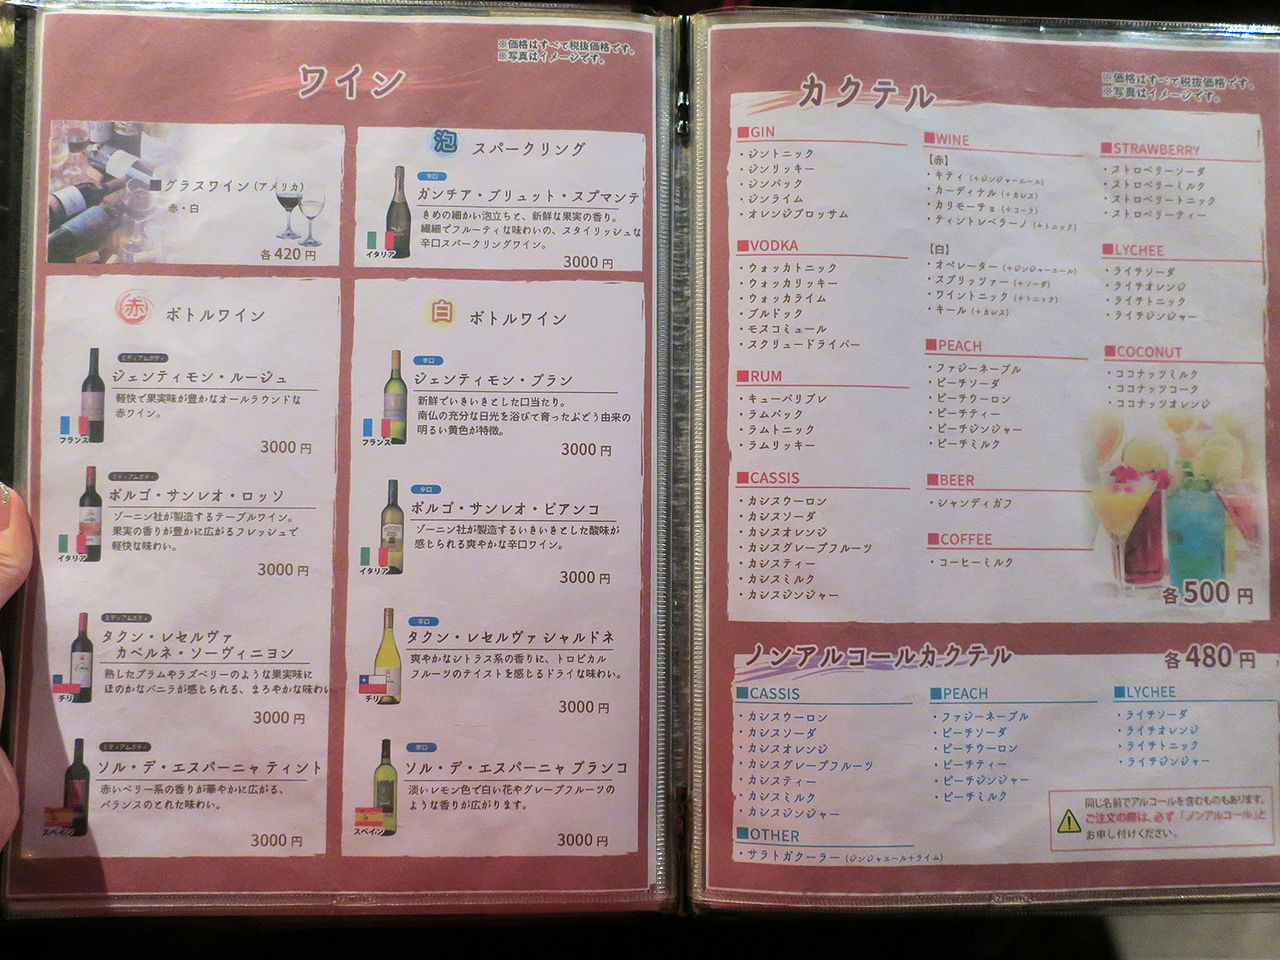 ワイン
※価格はすべて税抜価格です。
※写真はイメージです。
■グラスワイン(アメリカ)
赤・白
各420円
泡 スパークリング
辛口
ガンチア・ブリュット・スプマンテ
きめの細かい泡立ちと、新鮮な果実の香り。
繊細でフルーティな味わいの、スタイリッシュな
辛口スパークリングワイン。
イタリア
3000円
赤 ボトルワイン
ミディアムボディ
ジェンティモン・ルージュ
軽快で果実味が豊かなオールラウンドな
赤ワイン。
フランス
3000円
ミディアムボディ
ボルゴ・サンレオ・ロッソ
ゾーニン社が製造するテーブルワイン。
果実の香りが豊かに広がるフレッシュで
軽快な味わい。
イタリア
3000円
ミディアムボディ
タクン・レセルヴァ
カベルネ・ソーヴィニヨン
熟したプラムやラズベリーのような果実味に
ほのかなバニラが感じられる、まろやかな味わい。
チリ
3000円
ミディアムボディ
ソル・デ・エスパーニャ ティント
赤いベリー系の香りが華やかに広がる、
バランスのとれた味わい。
スペイン
3000円
白 ボトルワイン
辛口
ジェンティモン・ブラン
新鮮でいきいきとした口当たり。
南仏の充分な日光を浴びて育ったぶどう由来の
明るい黄色が特徴。
フランス
3000円
辛口
ボルゴ・サンレオ・ビアンコ
ゾーニン社が製造するいきいきとした酸味が
感じられる爽やかな辛口ワイン。
イタリア
3000円
辛口
タクン・レセルヴァ シャルドネ
爽やかなシトラス系の香りに、トロピカル
フルーツのテイストを感じるドライな味わい。
チリ
3000円
辛口
ソル・デ・エスパーニャ ブランコ
淡いレモン色で白い花やグレープフルーツの
ような香りが広がります。
スペイン
3000円
カクテル
※価格はすべて税抜価格です。
※写真はイメージです。
■GIN
・ジントニック
・ジンリッキー
・ジンバック
・ジンライム
・オレンジブロッサム
■VODKA
・ウォッカトニック
・ウォッカリッキー
・ウォッカライム
・ブルドック
・モスコミュール
・スクリュードライバー
■RUM
・キューバリブレ
・ラムバック
・ラムトニック
・ラムリッキー
■CASSIS
・カシスウーロン
・カシスソーダ
・カシスオレンジ
・カシスグレープフルーツ
・カシスティー
・カシスミルク
・カシスジンジャー
■WINE
【赤】
・キティ(+ジンジャーエール)
・カーディナル(+カシス)
・カリモーチョ(+コーラ)
・ティントレベラーノ(+トニック)
【白】
・オペレーター(+ジンジャーエール)
・スプリッツァー(+ソーダ)
・ワイントニック(+トニック)
・キール(+カシス)
■PEACH
・ファジーネーブル
・ピーチソーダ
・ピーチウーロン
・ピーチティー
・ピーチジンジャー
・ピーチミルク
■BEER
・シャンディガフ
■COFFEE
・コーヒーミルク
■STRAWBERRY
・ストロベリーソーダ
・ストロベリーミルク
・ストロベリートニック
・ストロベリーティー
■LYCHEE
・ライチソーダ
・ライチオレンジ
・ライチトニック
・ライチジンジャー
■COCONUT
・ココナッツミルク
・ココナッツコーク
・ココナッツオレンジ
各500円
ノンアルコールカクテル
各480円
■CASSIS
・カシスウーロン
・カシスソーダ
・カシスオレンジ
・カシスグレープフルーツ
・カシスティー
・カシスミルク
・カシスジンジャー
■OTHER
・サラトガクーラー(ジンジャエール+ライム)
■PEACH
・ファジーネーブル
・ピーチソーダ
・ピーチウーロン
・ピーチティー
・ピーチジンジャー
・ピーチミルク
■LYCHEE
・ライチソーダ
・ライチオレンジ
・ライチトニック
・ライチジンジャー
同じ名前でアルコールを含むものもあります。
ご注文の際は、必ず「ノンアルコール」と
お申し付けください。